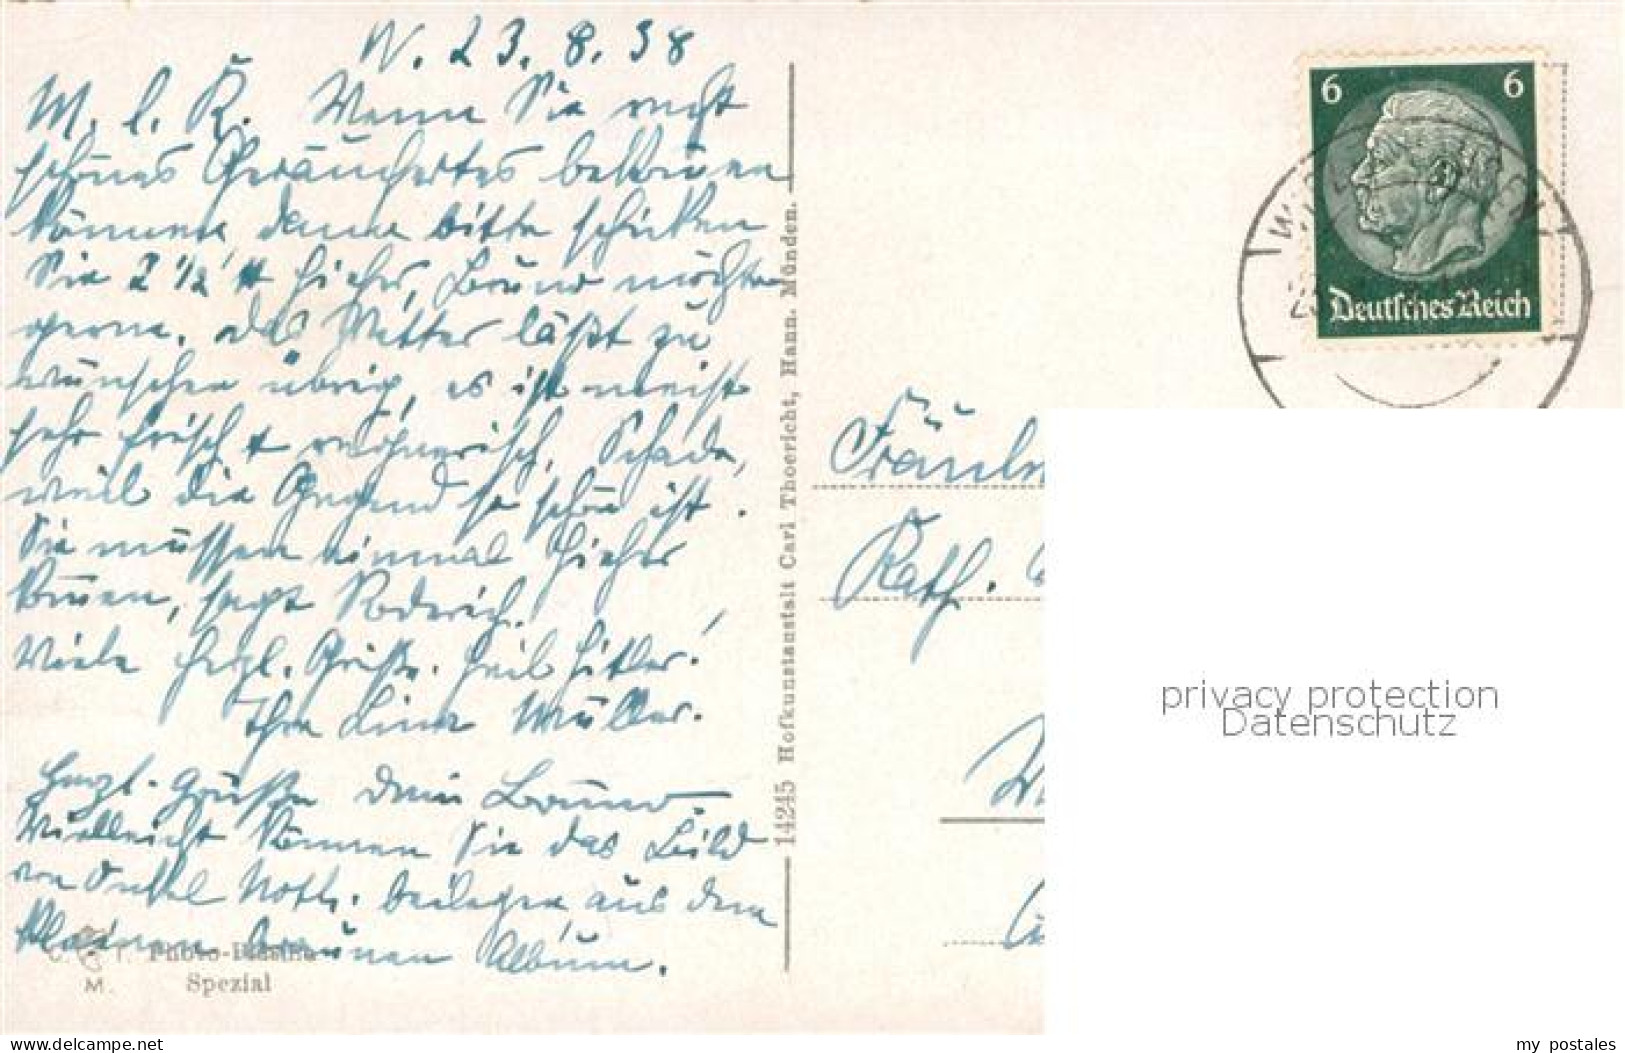 W. 23. 8. 38
M. l. K. Wenn Sie recht
schönes Geräuchertes bekommen
können, dann bitte schicken
Sie 2 1/2 ℔ hieher, Bruno möchte
gerne. Das Wetter läßt zu
wünschen übrig, es ist meist
sehr frisch + regnerisch. Schade,
weil die Gegend so schön ist.
Sie müssen einmal hieher
kommen, sagt Roderich.
Viele herzl. Grüße. Heil Hitler!
Ihre Lina Müller.
Herzl. Grüße Dein Bruno
Vielleicht können Sie das Bild
von Onkel Noth. beilegen aus dem
kleinen braunen Album.
Spezial
M.
14245 Hofkunstanstalt Carl Thoericht, Hann. Münden.
6 6
Deutsches Reich
Fräulein
Kath.
privacy protection
Datenschutz
www.delcampe.net
my_postales